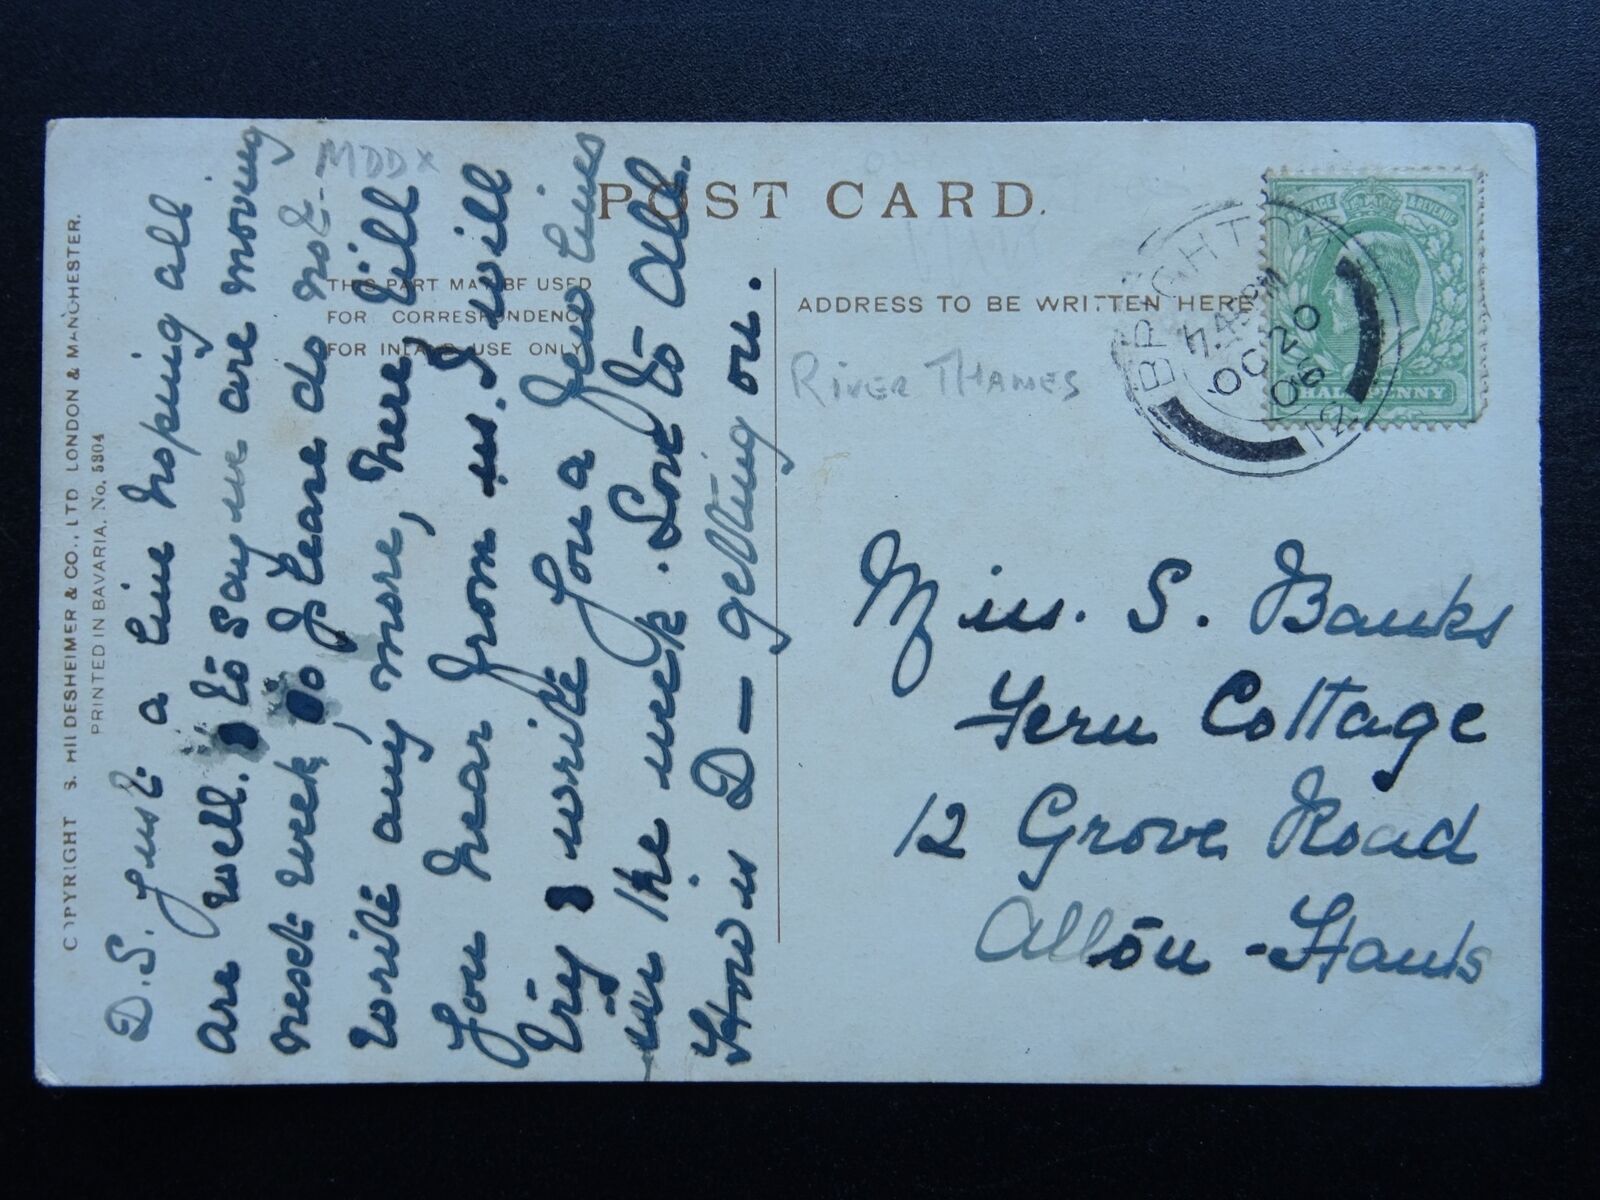 COPYRIGHT S. HILDESHEIMER & CO., LTD LONDON & MANCHESTER.
PRINTED IN BAVARIA. No. 5304
MDDX
POST CARD.
THIS PART MAY BE USED
FOR CORRESPONDENCE
FOR INLAND USE ONLY
D.S. Just a line hoping all
are well. to say we are moving
next week, so please do not
write any more, here, till
you hear from us. I will
try & write you a few lines
in the week. Love to all.
How is D— getting on.
ADDRESS TO BE WRITTEN HERE
RIVER THAMES
BRIGHTON
7.45 PM
OC 20
06
12
POSTAGE & REVENUE
HALF PENNY
Miss. S. Banks
Fern Cottage
12 Grove Road
Alton - Hants